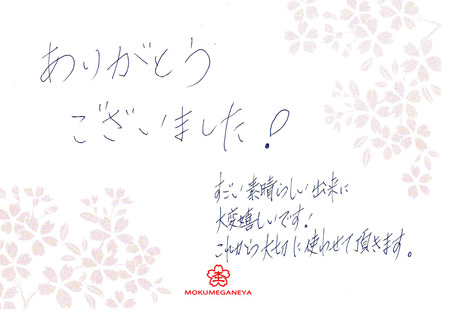 ありがとう
ございました!
すごい素晴らしい出来に
大変嬉しいです!
これから大切に使わせて頂きます。
MOKUMEGANEYA